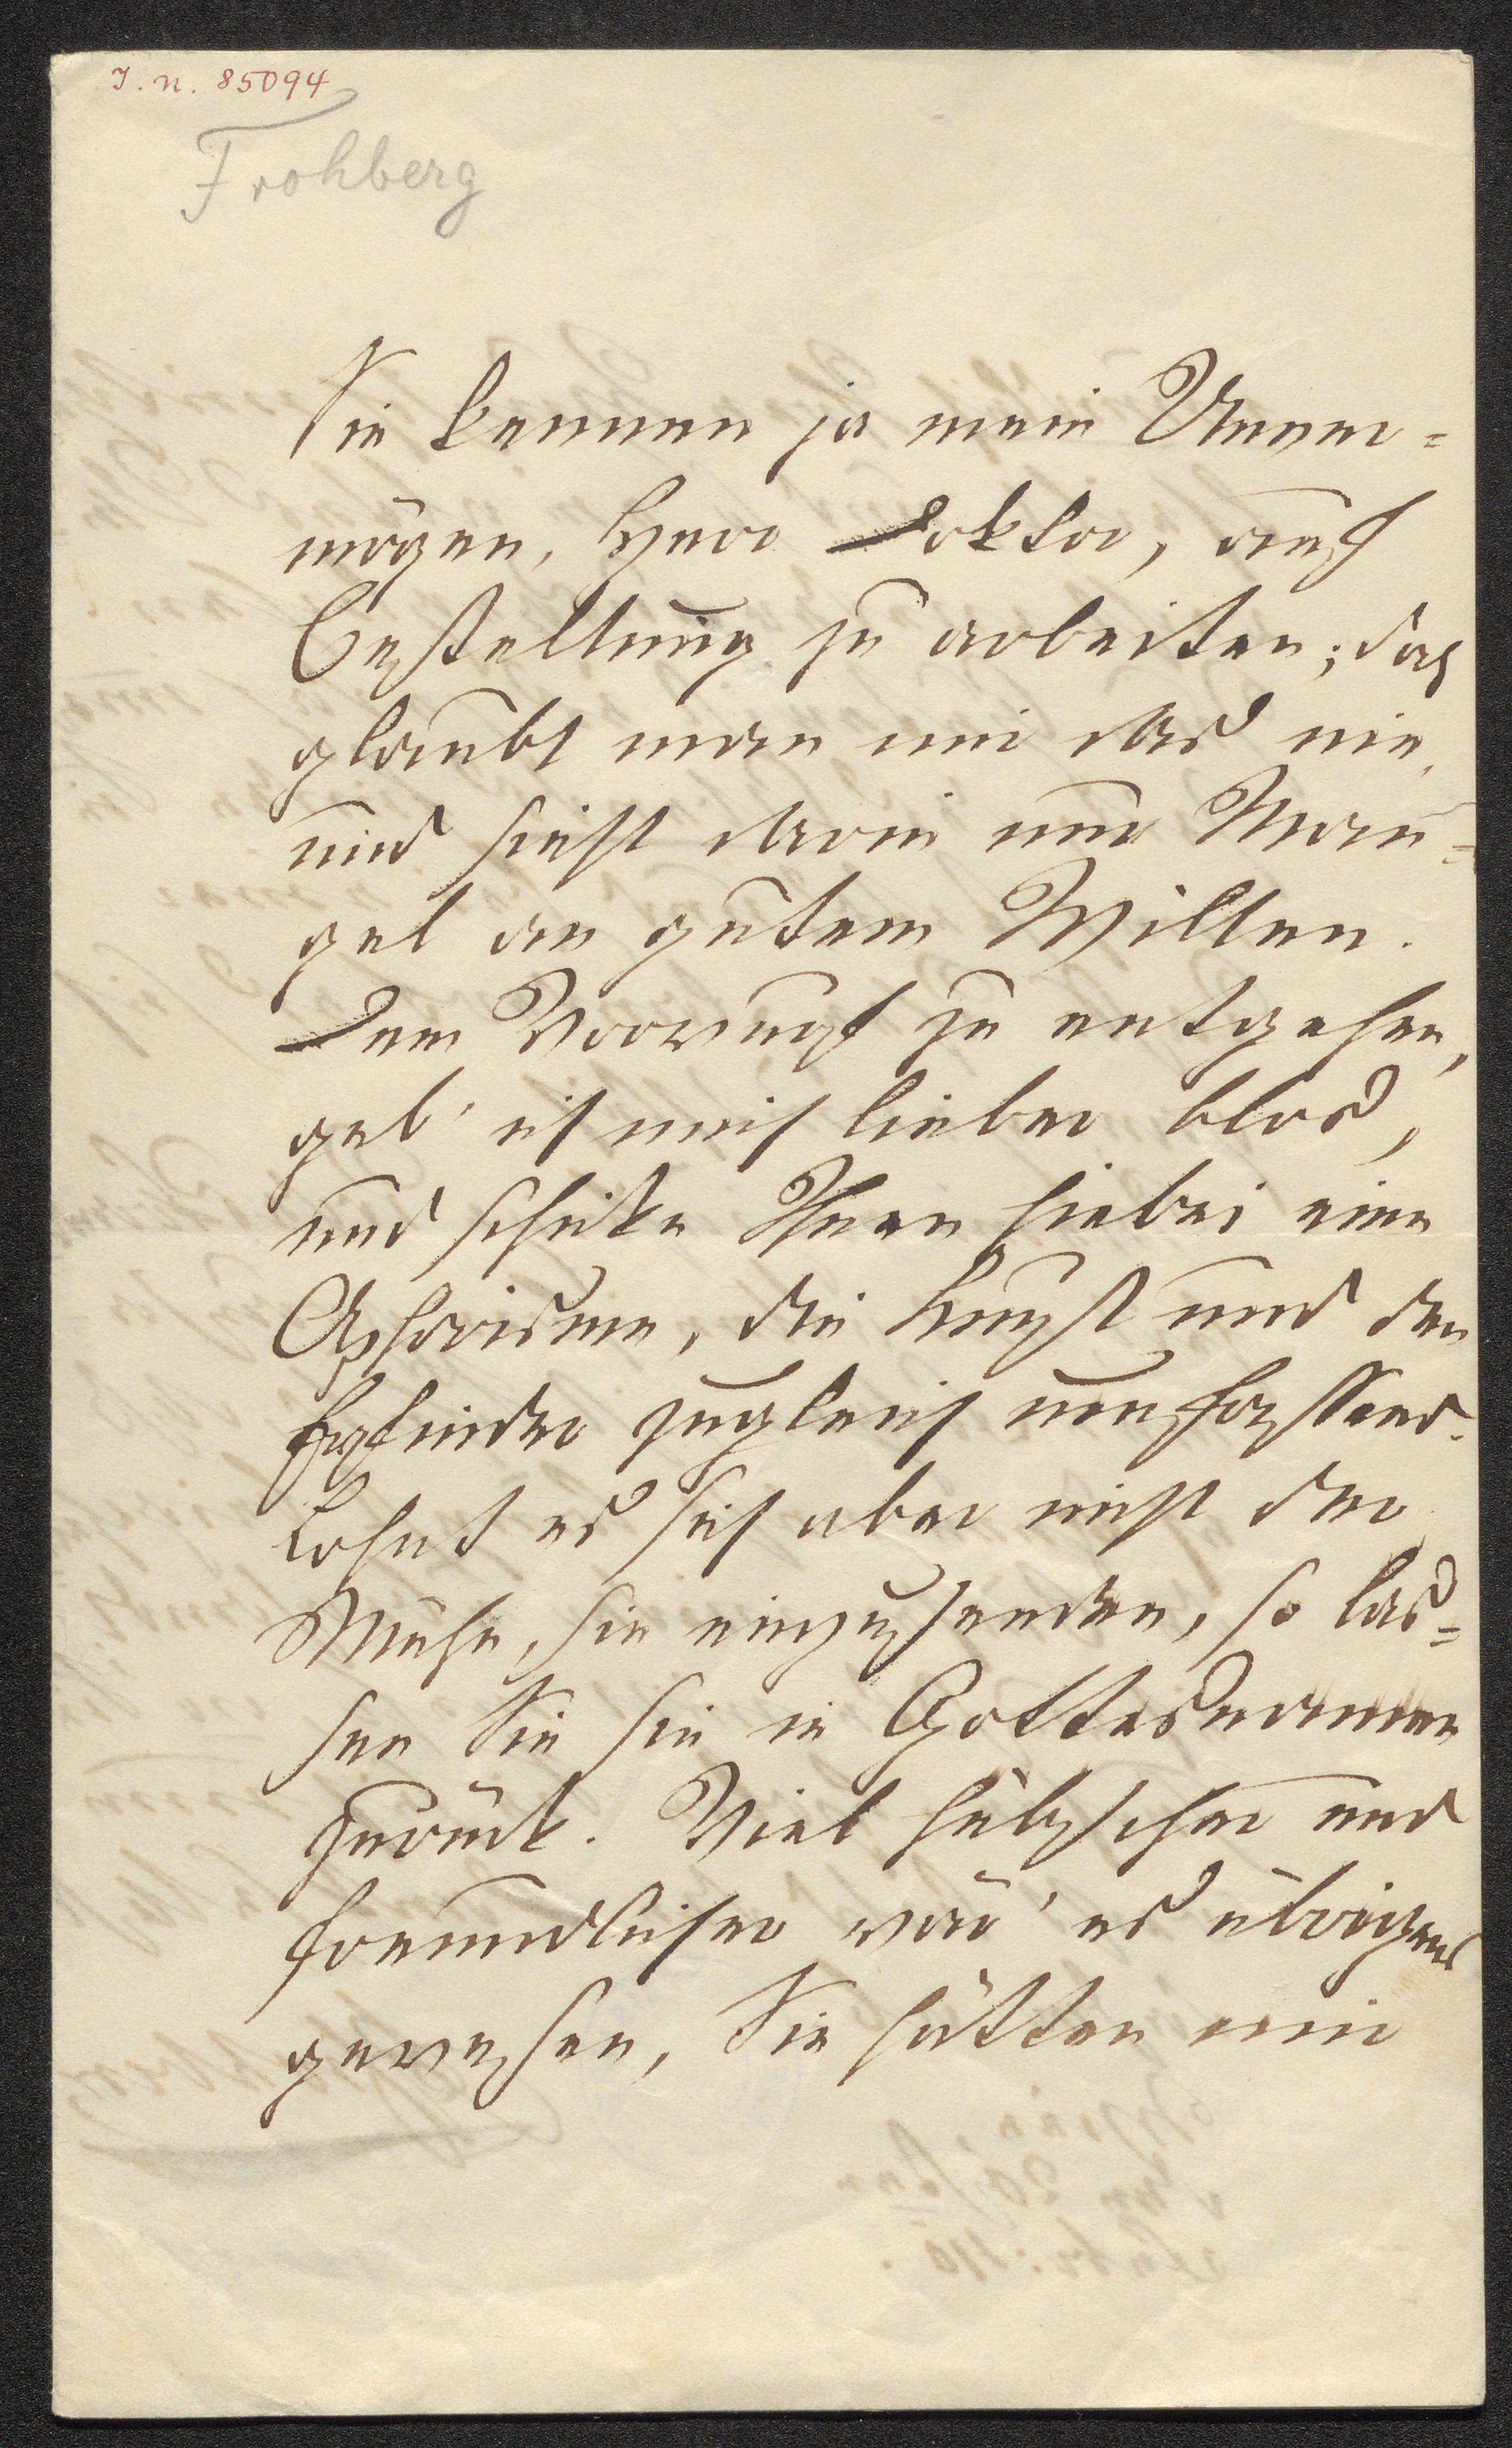 I. N. 85094
Frohberg
Sie kennen ja mein Unver=
mögen, Herr Doktor, auf
Bestellung zu arbeiten; doch
glaubt man mir das nie,
und sieht darin nur Man=
gel an gutem Willen.
Dem Vorwurf zu entgehen,
geb' ich mich lieber blos,
und schicke Ihnen hiebei eine
Aphorisme, die Kunst und den
Erfinder zugleich umfassend.
Lohnt es sich aber nicht der
Mühe, sie einzusenden, so las=
sen Sie sie in Gottesnamen
zurück. Viel hübscher und
freundlicher wär' es übrigens
gewesen, Sie hätten mir